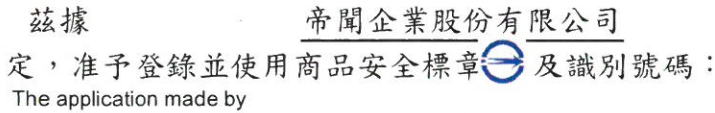 茲據 帝聞企業股份有限公司
定，准予登錄並使用商品安全標章 及識別號碼：
The application made by